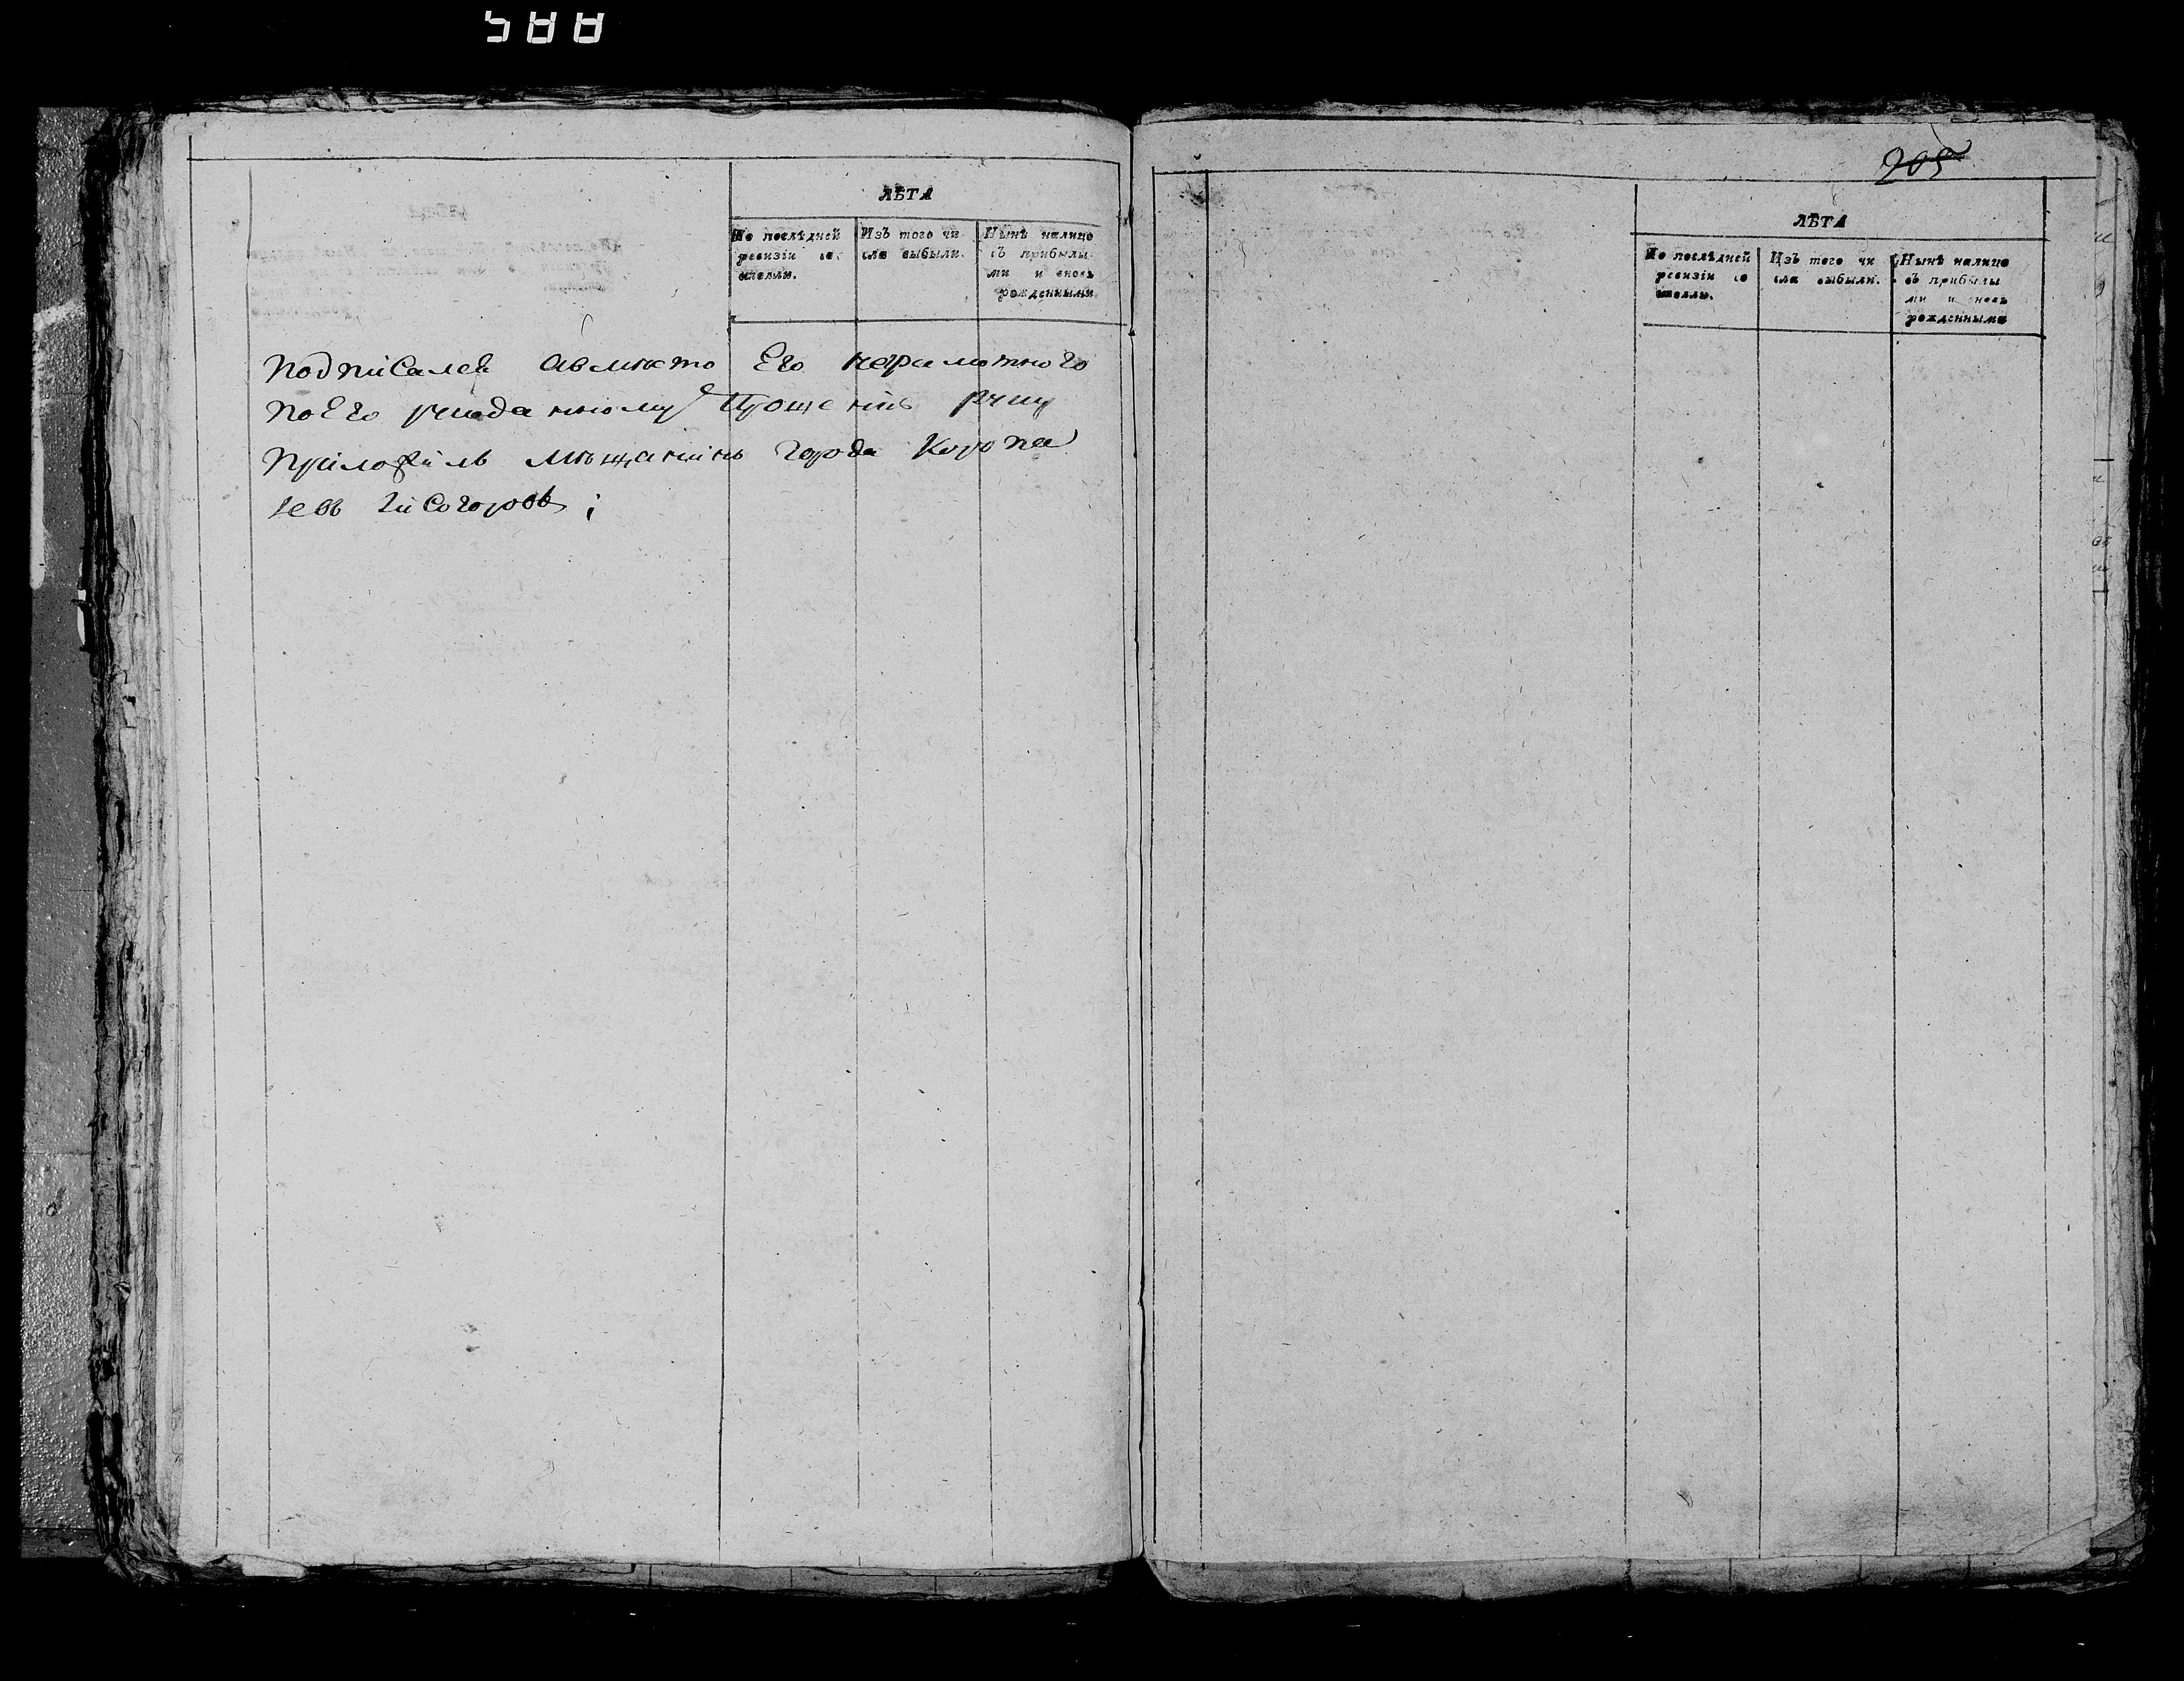 588
ЛѢТА
По послѣдней ревизіи состояли.
Изъ того числа выбыли.
Нынѣ налицо съ прибылыми и вновь рожденными
подписалей авмѣсто Его неграмотного
поЕго рчнода нному Прошенію рчку
Приложилъ мѣщанинъ города Коропа
города
205
ЛѢТА
По послѣдней ревизіи состояли.
Изъ того числа выбыли.
Нынѣ налицо съ прибылыми и вновь рожденными